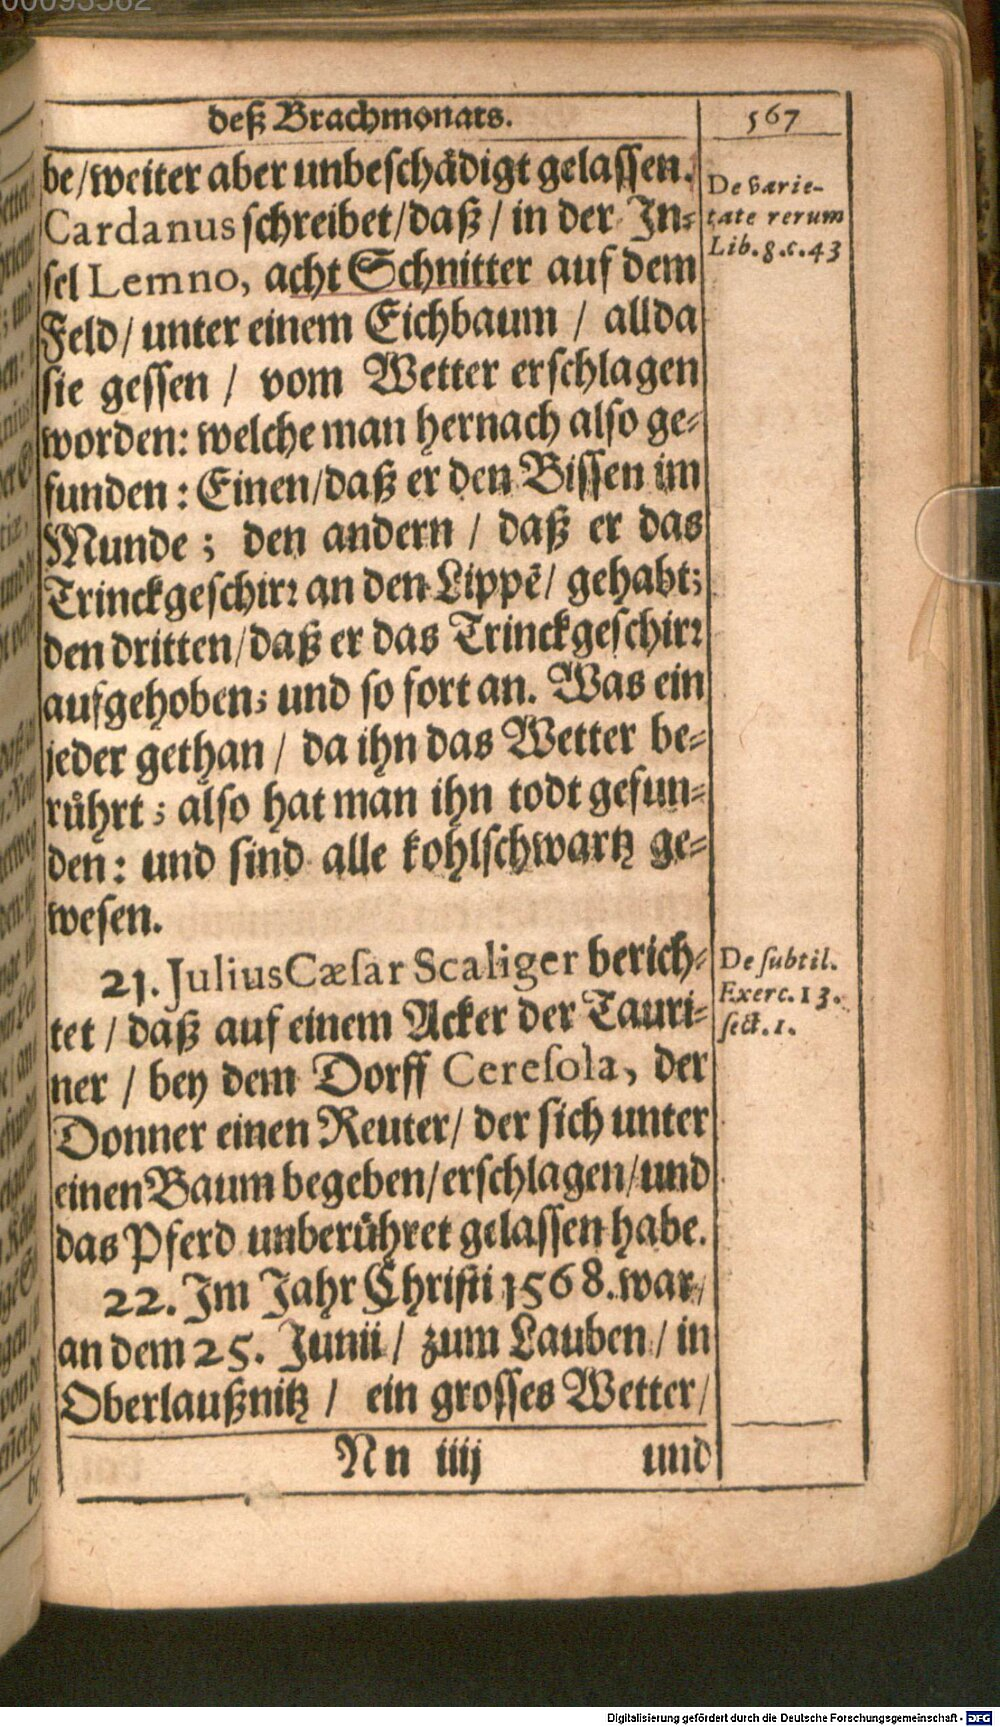 deß Brachmonats. 567
be/weiter aber unbeschädigt gelassen.
Cardanus schreibet/daß/ in der In-
sel Lemno, acht Schnitter auf dem
Feld/ unter einem Eichbaum / allda
sie gessen / vom Wetter erschlagen
worden: welche man hernach also ge-
funden: Einen/daß er den Bissen im
Munde; den andern / daß er das
Trinckgeschirr an den Lippē/ gehabt;
den dritten/daß er das Trinckgeschirr
aufgehoben; und so fort an. Was ein
jeder gethan / da ihn das Wetter be-
rührt; also hat man ihn todt gefun-
den: und sind alle kohlschwartz ge-
wesen.
21. Julius Cæsar Scaliger berich-
tet / daß auf einem Acker der Tauri-
ner / bey dem Dorff Ceresola, der
Donner einen Reuter/ der sich unter
einen Baum begeben/erschlagen/und
das Pferd unberühret gelassen habe.
22. Im Jahr Christi 1568. war/
an dem 25. Junii/ zum Lauben/ in
Oberlaußnitz / ein grosses Wetter/
Nn iiij und
De varie-
tate rerum
Lib. 8. c. 43
De subtil.
Exerc. 13.
sect. 1.
Digitalisierung gefördert durch die Deutsche Forschungsgemeinschaft - DFG